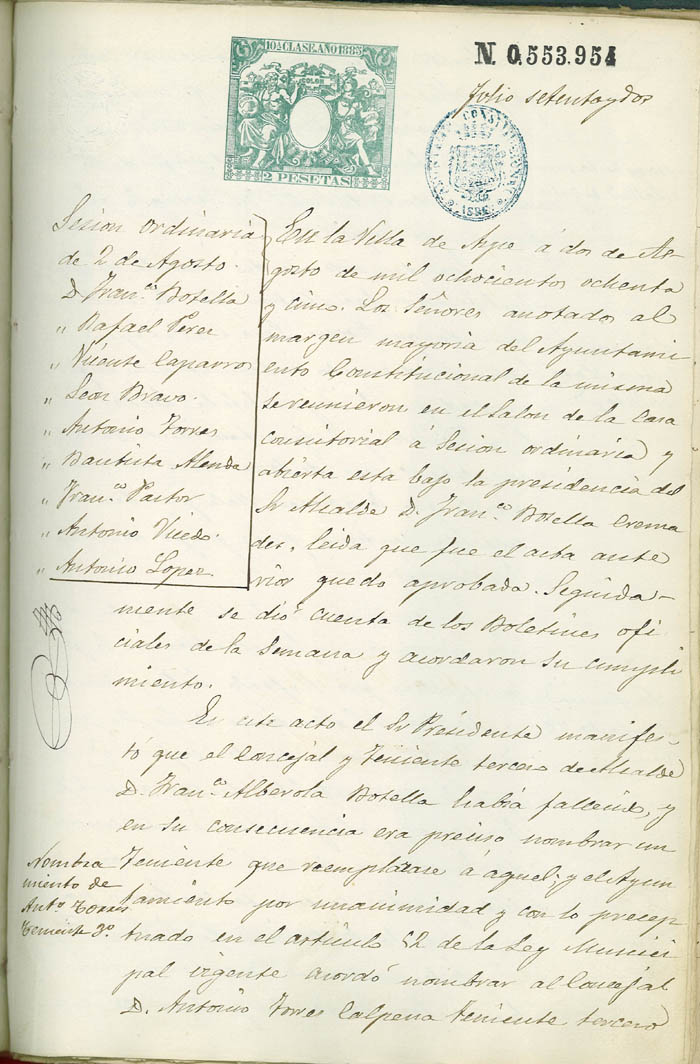 10ª CLASE. AÑO 1885
2 PESETAS
N. 0.553.954
Folio setenta y dos
Sesion ordinaria
de 2 de Agosto.
D. Fran.co Botella
" Rafael Perez
" Vicente Caparros
" Leon Bravo.
" Antonio Torres
" Bautista Alenda
" Fran.co Pastor
" Antonio
" Antonio Lopez
En la Villa de Aspe á dos de Ag-
gosto de mil ochocientos ochenta
y cinco. Los Señores anotados al
margen mayoria del Ayuntami-
ento Constitucional de la misma
se reunieron en el Salon de la Casa
consistorial á Sesion ordinaria y
abierta esta bajo la presidencia del
Sr Alcalde D. Fran.co Botella Crema
des, leida que fue el acta ante
rior quedo aprobada. Seguida-
mente se dió cuenta de los Boletines ofi
ciales de la Semana y acordaron su cumpli
miento.
En este acto el Sr Presidente manifes-
tó que el Concejal y Teniente tercero de Alcalde
D. Fran.co Alberola Botella habia fallecido, y
en su consecuencia era preciso nombrar un
Teniente que reemplazase á aquel; y el Ayun
tamiento por unanimidad y con lo precep
tuado en el articulo 52 de la Ley Munici
pal vigente acordó nombrar al Concejal
D. Antonio Torres Calpena Teniente tercero
Nombra
miento de
Ant.o Torres
Teniente 3.o